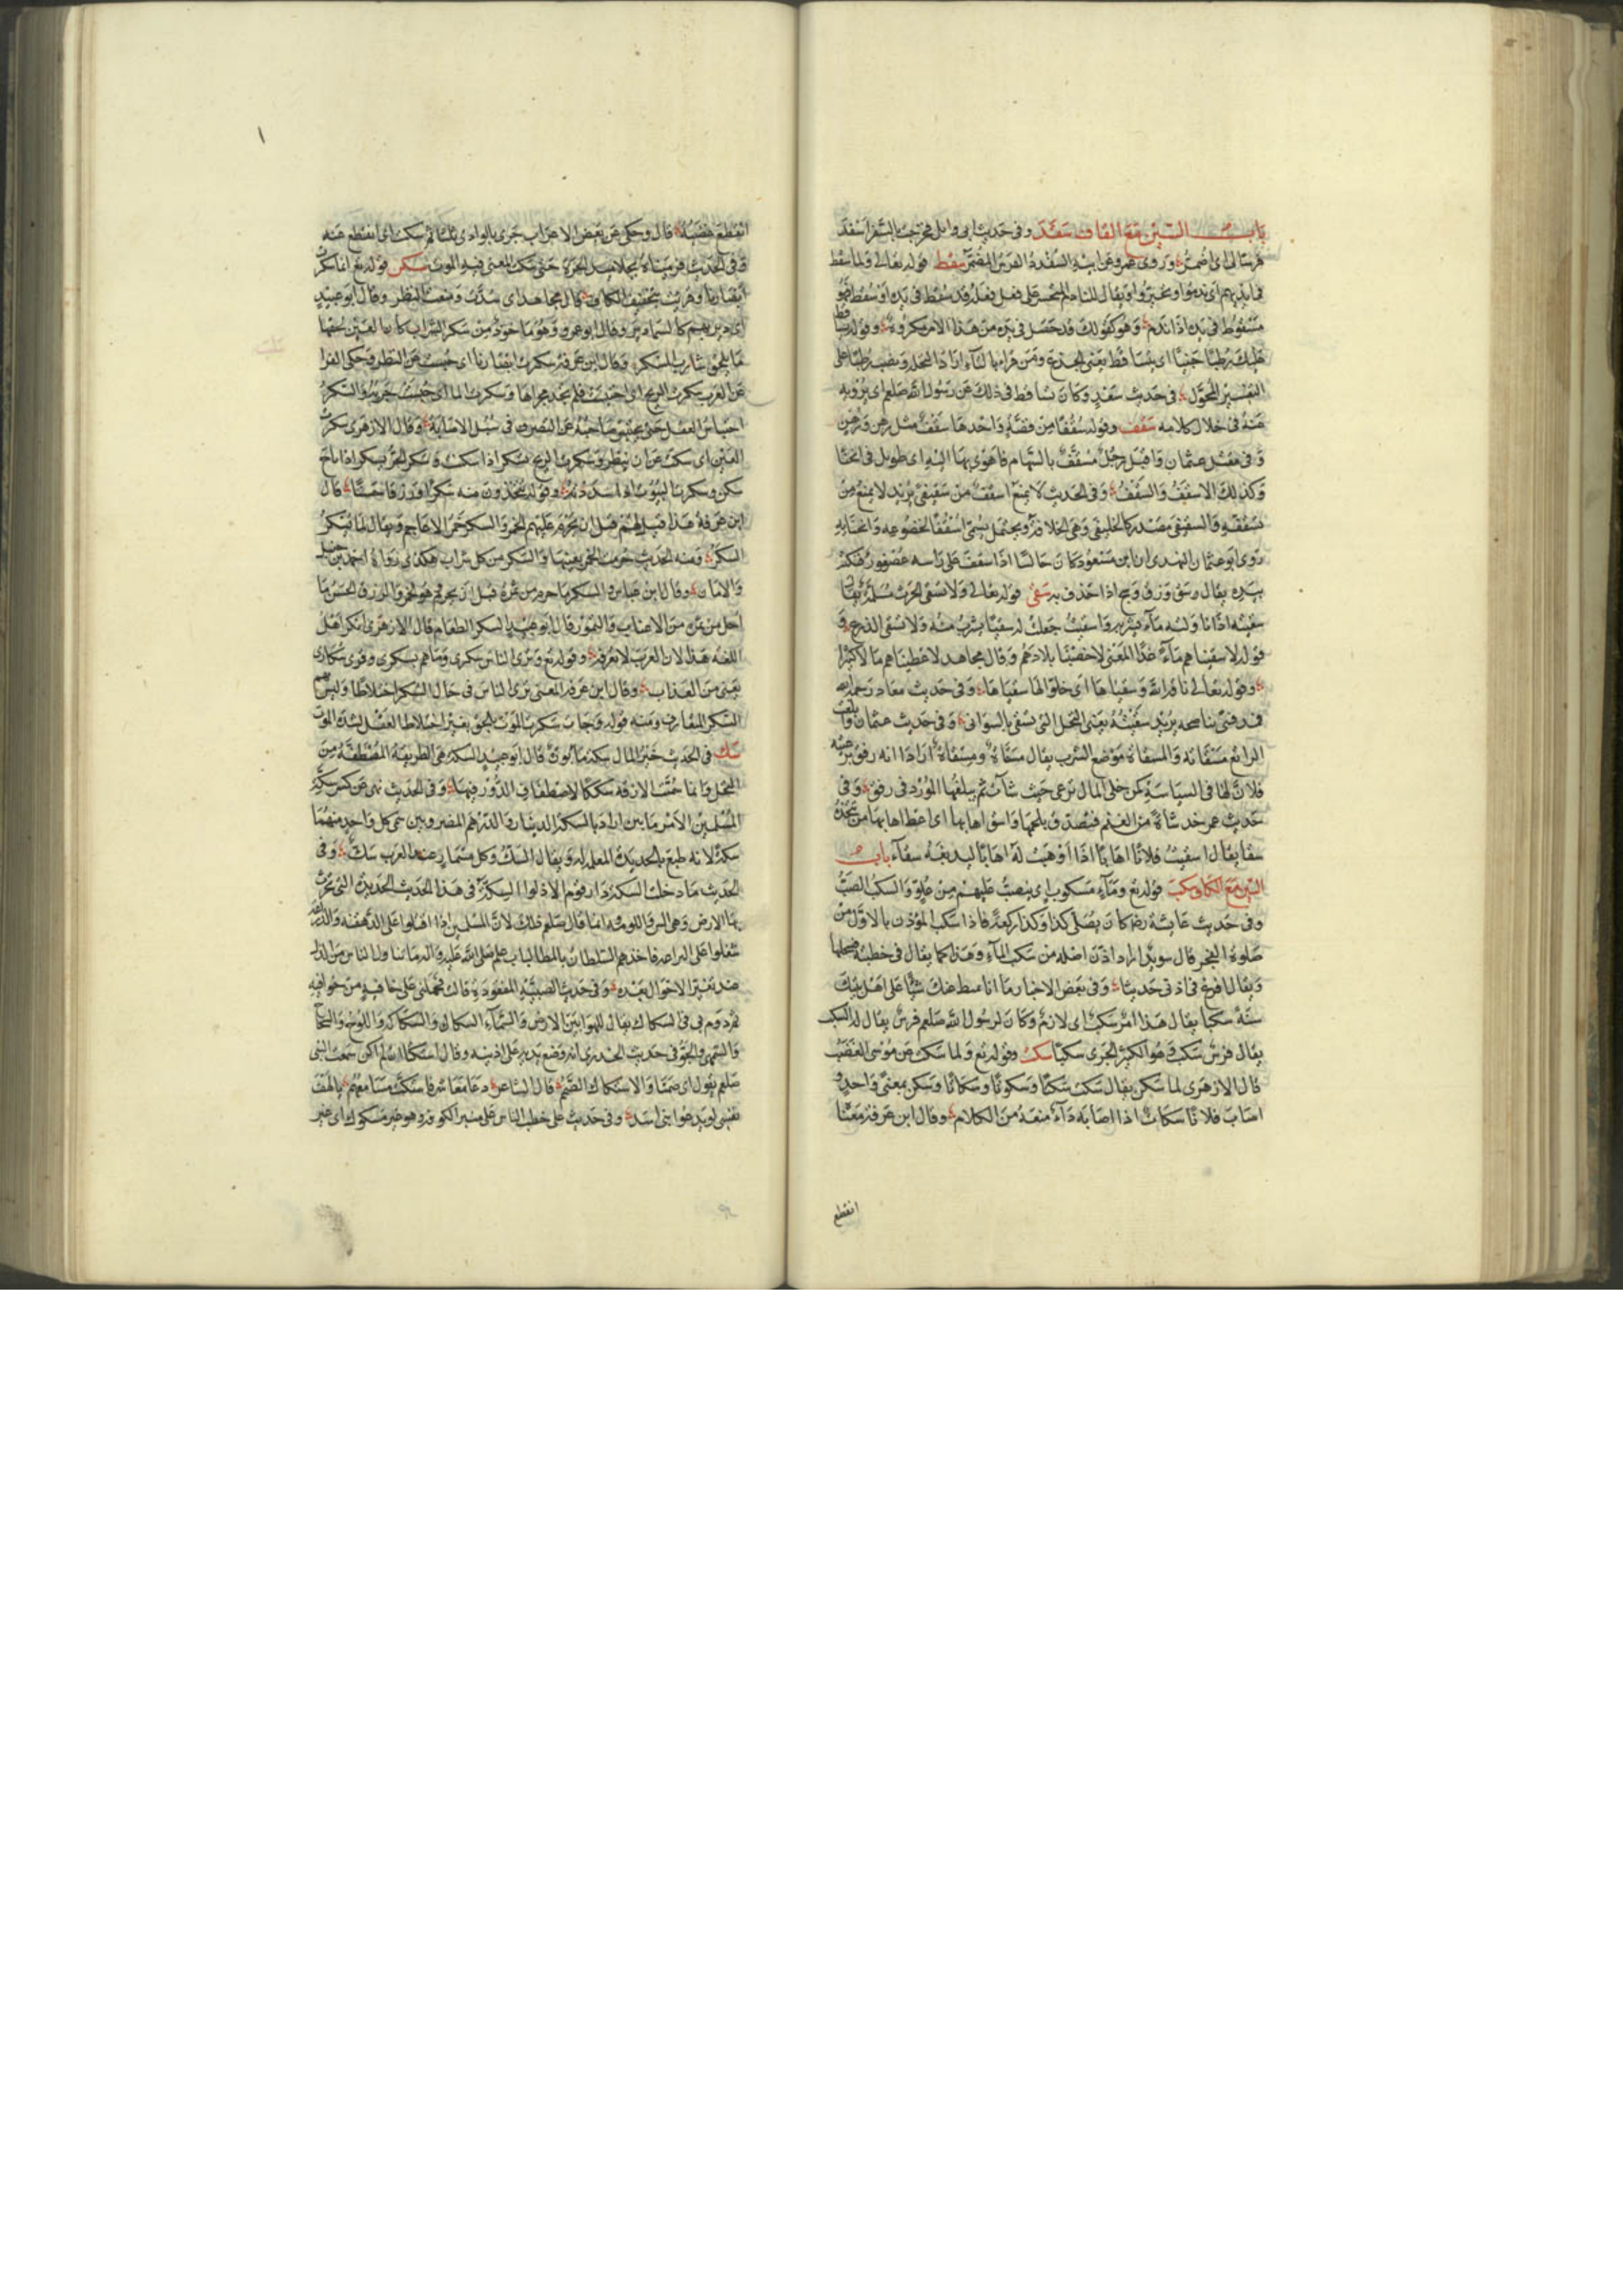 باب السين مع القاف سقد وفي حديث ابي وائل فخرجت بالسحر اسقد
فرسا لي اي اضمر وروى عمرو عن ابيه السقدد الفرس المضمر سقط قوله تعالى ولما سقط
في ايديهم اي ندموا وتحيروا ويقال للنادم المتحسر على فعل فعله قد سقط في يده او سقط فهو
مسقوط في يده اذا ندم وهو كقولك قد حصل في يده من هذا الامر مكروه وقوله تساقط
عليك رطبا جنيا اي يتساقط يعني الجذع ومن قراه بالتاء اراد النخلة ونصب رطبا على
التفسير المحول في حديث سعد وكان يساقط في ذلك عن رسول الله صلعم اي يرويه
عنه في خلال كلامه سقف وقوله سقفا من فضة واحدها سقف مثل رهن ورهن
وفي مقتل عثمان واقبل رجل مسقف بالسهام فاهوى بها اليه اي طويل في انحنا
وكذلك الاسقف والسقف وفي الحديث لا يمنع اسقف من سقيفى يريد لا يمنع من
تسقفه والسقيفى مصدر كالخليفى وهي الخلافة ويحتمل يسمى اسقفا لخضوعه وانحنائه
روى ابو عثمان النهدي ان ابن مسعود كان جالسا اذا سقف على راسه عصفور فنكته
بيده يقال وسق وزق ومج اذا حذف به سقى قوله تعالى ولا تسقي الحرث مسلمة يقال
سقيته اذا ناولته ماء يشربه واسقيته جعلت له سقيا يشرب منه ولا تسقي الذرع
قوله لاسقيناهم ماء غدقا المعنى لاخصبنا بلادهم وقال مجاهد لاعطيناهم مالا كثيرا
وقوله تعالى ناقة الله وسقياها اي خلوا لها سقياها وفي حديث معاذ رحمه الله
يريد سقيته يعني النخل التي تسقى بالسواني وفي حديث عثمان وابلغت
الراتع مسقاته والمسقاة موضع الشرب يقال مسقاة ومسقاة اراد انه رفق برعيته
ولان لها في السياسة كمن خلى المال يرعى حيث شاء ثم يبلغها المورد في رفق وفي
حديث عمر خذ شاة من الغنم فتصدق بلحمها واسق اهابها اي اعط اهابها من يتخذه
سقا يقال اسقيت فلانا اهابا اذا وهبت له اهابا ليدبغه سقاء باب
السين مع الكاف سكب قوله تع وماء مسكوب اي ينصب عليهم من علو والسكب الصب
وفي حديث عايشة رضها كان يصلي كذا وكذا ركعة فاذا سكب المؤذن بالاولى من
صلوة الفجر قال سويد اراد اذن اصله من سكب الماء وهذا كما يقال في خطبته
ويقال افرغ في اذني حديثا وفي بعض الاخبار ما انا بمنط عنك شيئا على اهل بيتك
سنة سكبا يقال هذا امر سكب اي لازم وكان لرسول الله صلعم فرس يقال له السكب
يقال فرس سكب وهو الكثير الجري سكت وقوله تع ولما سكت عن موسى الغضب
قال الازهري لما سكن يقال سكت سكتا وسكوتا وسكاتا وسكن بمعنى واحد و
اصاب فلانا سكات اذا اصابه داء منعه من الكلام وقال ابن عرفة معنا
انقطع
انقطع غضبه قال وحكي عن بعض الاعراب جرى بالوادي ثلثا ثم سكت اي انقطع عنه
وفي الحديث فرميناه بجلاميد الحرة حتى سكت المعنى فيه الموت سكر قوله تع انما سكرت
ابصارنا وقريت بتخفيف الكاف قال مجاهد اي سدت ومنعت النظر وقال ابو عبيد
اي دير بهم كالسماد ير وقال ابو عمرو وهو ماخوذ من سكر الشراب كان العين لحقها
ما يلحق شارب المسكر وقال ابن عرفة سكرت ابصارنا اي حبست عن النظر وحكى الفرا
عن العرب سكرت الريح اي احتبست فلم تجد مجراها وسكرت الما اي حبست جريته والسكر
احتباس العقل حتى يحتبس صاحبه عن التصرف في سبل الاصابة وقال الازهري سكرت
العين اي سكت عن ان ينظر وسكرت الريح تسكر اذا سكنت وسكر الحر يسكر اذا باخ
سكن وسكرت البثوق اذا سددته وقوله تتخذون منه سكرا ورزقا حسنا قال
ابن عرفة هذا قيل لهم قبل ان يحرم عليهم الخمر والسكر خمر الاعاجم ويقال لما يسكر
السكر ومنه الحديث حرمت الخمر بعينها والسكر من كل شراب هكذي رواه احمد بن حنبل
والامان وقال ابن عباس السكر ما حرم من ثمرة قبل ان يحرم وهو الخمر والرزق الحسن ما
احل من ثمره من الاعناب والتمور قال ابو عبيد السكر الطعام قال الازهري انكر اهل
اللغة هذا لان العرب لا تعرفه وقوله تع وترى الناس سكرى وما هم بسكرى وقرى سكارى
يعني من العذاب وقال ابن عرفة المعنى ترى الناس في حال السكر اختلاطا وليس بهم
السكر المتعارف ومنه قوله وجات سكرت الموت بالحق يعني اختلاط العقل لشدة الموت
سك في الحديث خير المال سكة مابورة قال ابو عبيد السكة هي الطريقة المصطفة من
النخل وانما سميت الازقة سككا لاصطفاف الدور فيها وفي الحديث نهى عن كسر سكة
المسلمين الا من باس اراد بالسكة الدينار والدرهم المضروبين سمي كل واحد منهما
سكة لانه طبع بالحديدة المعلمة له ويقال السك وكل مسمار عند العرب سك وفي
الحديث ما دخلت السكة دار قوم الا ذلوا السكة في هذا الحديث الحديدة التي تحرث
بها الارض وهي السن واللومة انما قال صلعم ذلك لان المسلمين اذا اقبلوا على الدهقنة والزراعة
شغلوا على فاخذهم السلطان بالمطالبات علم صلى الله عليه واله ما ينا ول الناس من الذل
عند تغير الاحوال بعده وفي حديث الصبية المفقودة قالت فحملني على خافية من خوافيه
ثم دوم بي في السكاك يقال للهوا بين الارض والسماء السكاك والسكاكة واللوح والسحاح
والسمهى والجو في حديث الخدري انه وضع يديه على اذنيه وقال استكتا ان لم اكن سمعت النبي
صلعم يقول اي صمتا والاستكاك الصمم قال الشاعر دعا معاشر فاستكت مسامعهم يا لهف
نفسي لو يدعوا بني اسد وفي حديث علي خطب الناس على منبر الكوفة وهو غير مسكوك اي غير